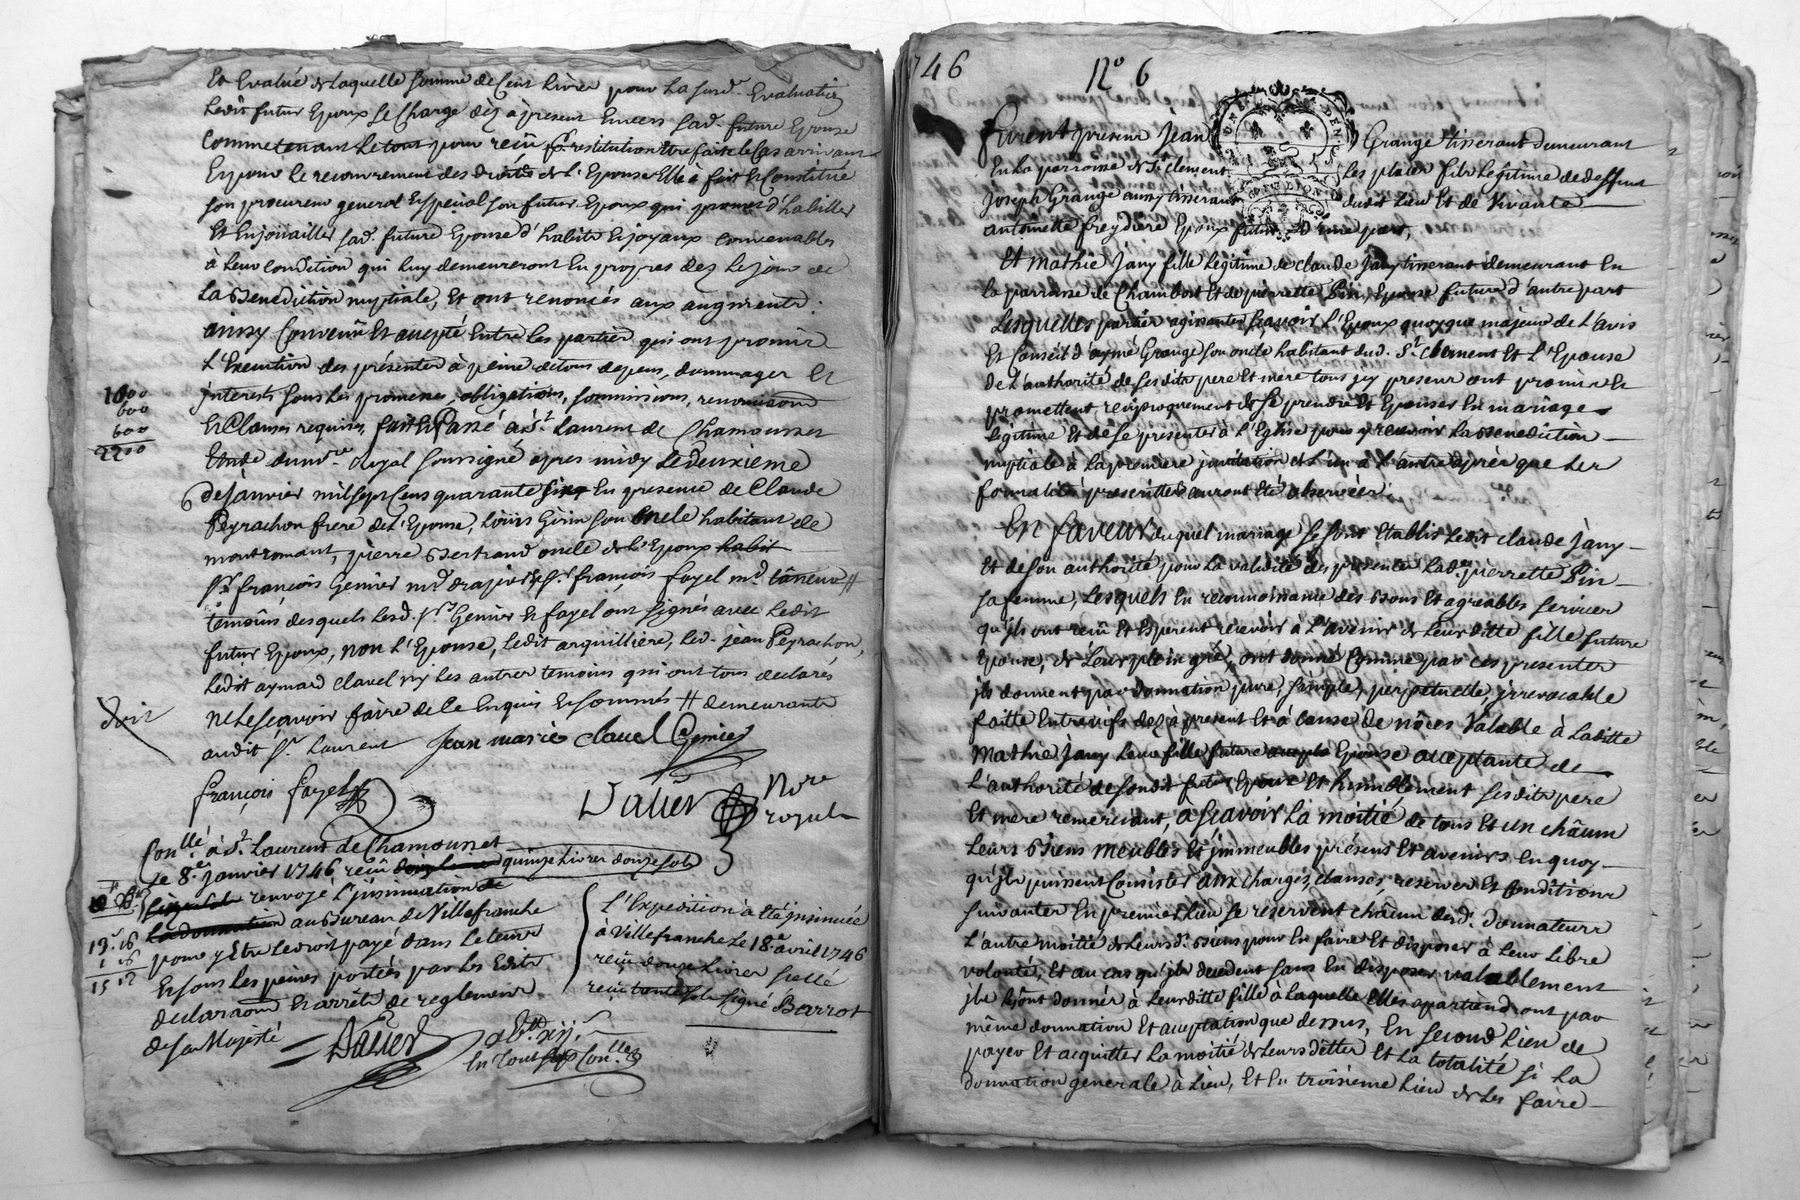 Et Evalué & laquelle somme de Cent Livres pour la susd. Evaluation
Ledit futur Epoux se Charge dez à present Envers sad. future Epouse
Comme tenant le tout pour reçu Et restitution Etre faite le Cas arrivant
Et pour le recouvrement des droits de L'Epouse Elle a fait et Constitué
son procureur general Et special son futur Epoux qui promet d'habiller
Et Enjouailler sad. future Epouse d'habits Et joyaux convenables
à Leur condition qui Luy demeureront En propres dez Le jour de
La Benediction nuptiale, Et ont renoncés aux augments.
ainsy Convenu Et accepté Entre les parties qui ont promis
L'Execution des présentes à peine de tous depens, dommages Et
jnterests sous les promesses, obligations, soumissions, renonciaons
Et Clauses requises, fait Et Passé à St. Laurent de Chamousset
Etude du no.re Royal soussigné apres midy Le deuxieme
de janvier mil sept Cens quarante six En presence de Claude
Peyrachon frere de L'Epouse, Loüis Girin son Oncle habitant de
montromant, pierre Bertrand oncle de L'Epoux habit
Sr. françois Genier md. drapier, & Sr. françois fayel md. tâneur #
témoins desquels Lesd. Srs. Genier & fayel ont signés avec Ledit
futur Epoux, non L'Epouse, Ledit arquilliere, Led. jean Peyrachon,
Ledit aymard clavel ny les autres temoins qui ont tous declarés
ne le sçavoir faire de ce Enquis Et sommés # demeurants
audit St. Laurent
jean marie clavel Genier
françois fayel
Dalier No.re royal
1000
600
600
2200
doit
Con.llé à St. Laurent de Chamousset
Le 8.e janvier 1746 reçu quinze Livres douze sols
renvoyé L'jnsinuation de
la donnation au Bureau de Villefranche
pour y Etre Le droit payé dans Le tems
Et sous les peines portées par les Edits
declaraons Et arrêts de reglement
de sa Majesté
Dalier
13 16
1 16
15 12
En Tout Con.lle
L'Expedition à été jnsinuée
à Villefranche Le 18.e avril 1746
reçu douze Livres scellé
reçu trente sols signé Barrot
746
No 6
Furent presens Jean Grange tisserant demeurant
En La parroisse de St. clement Les places fils Legitime de deffunt
Joseph Grange aussy tisserant dudit Lieu Et de Vivante
antoinette freydiere Epoux futur d'une part,
Et mathie jany fille Legitime de claude jany tisserant demeurant En
la parroisse de Chambost Et de pierrette Pin, Epouse future d'autre part
Lesquelles parties agissantes sçavoir L'Epoux quoyque majeur de L'avis
Et Conseil d'aymé Grange son oncle habitant dud. St. clement Et L'Epouse
de L'authorité de sesdits pere Et mere tous jcy presens ont promis Et
promettent reciproquement de se prendre Et Epouser En mariage
legitime Et de se presenter à L'Eglise pour y recevoir La Benediction
nuptiale à La premiere jnvitation de L'un à L'autre après que Les
formalités prescrittes auront Eté observées.
En faveur duquel mariage se sont Etablis Ledit claude jany
Et de son authorité pour La validité des presentes Lad. pierrette Pin
sa femme, Lesquels En reconnoissance des Bons Et agreables services
qu'jls ont reçu Et Esperent recevoir à L'avenir de Leurditte fille future
Epouse, de Leur plein gré, ont donné Comme par ces presentes
jls donnent par donnation pure, simple, perpetuelle, jrrevocable
faitte Entrevifs dez à present Et à cause de nôces Valable à Laditte
Mathie jany Leur fille future Epouse acceptante de
L'authorité de sondit futur Epoux Et humblement sesdits pere
Et mere remerciant, a sçavoir La moitié de tous Et un châcun
Leurs Biens meubles Et jmmeubles présens Et avenirs En quoy
qu'jls puissent Consister aux charges, clauses, reserves Et Conditions
suivantes En premier Lieu se reservent châcun desd. donnateurs
L'autre moitié de Leursd. Biens pour En faire Et disposer à Leur Libre
volonté, Et au cas qu'jls decedent sans En disposer valablement
jls L'ont donnés à Leurditte fille à Laquelle Elles apartiendront par
même donnation Et acceptation que dessus, En second Lieu de
payer Et acquitter La moitié de Leurs dettes Et La totalité si La
donnation generale à Lieu, Et En troisieme Lieu de Les faire